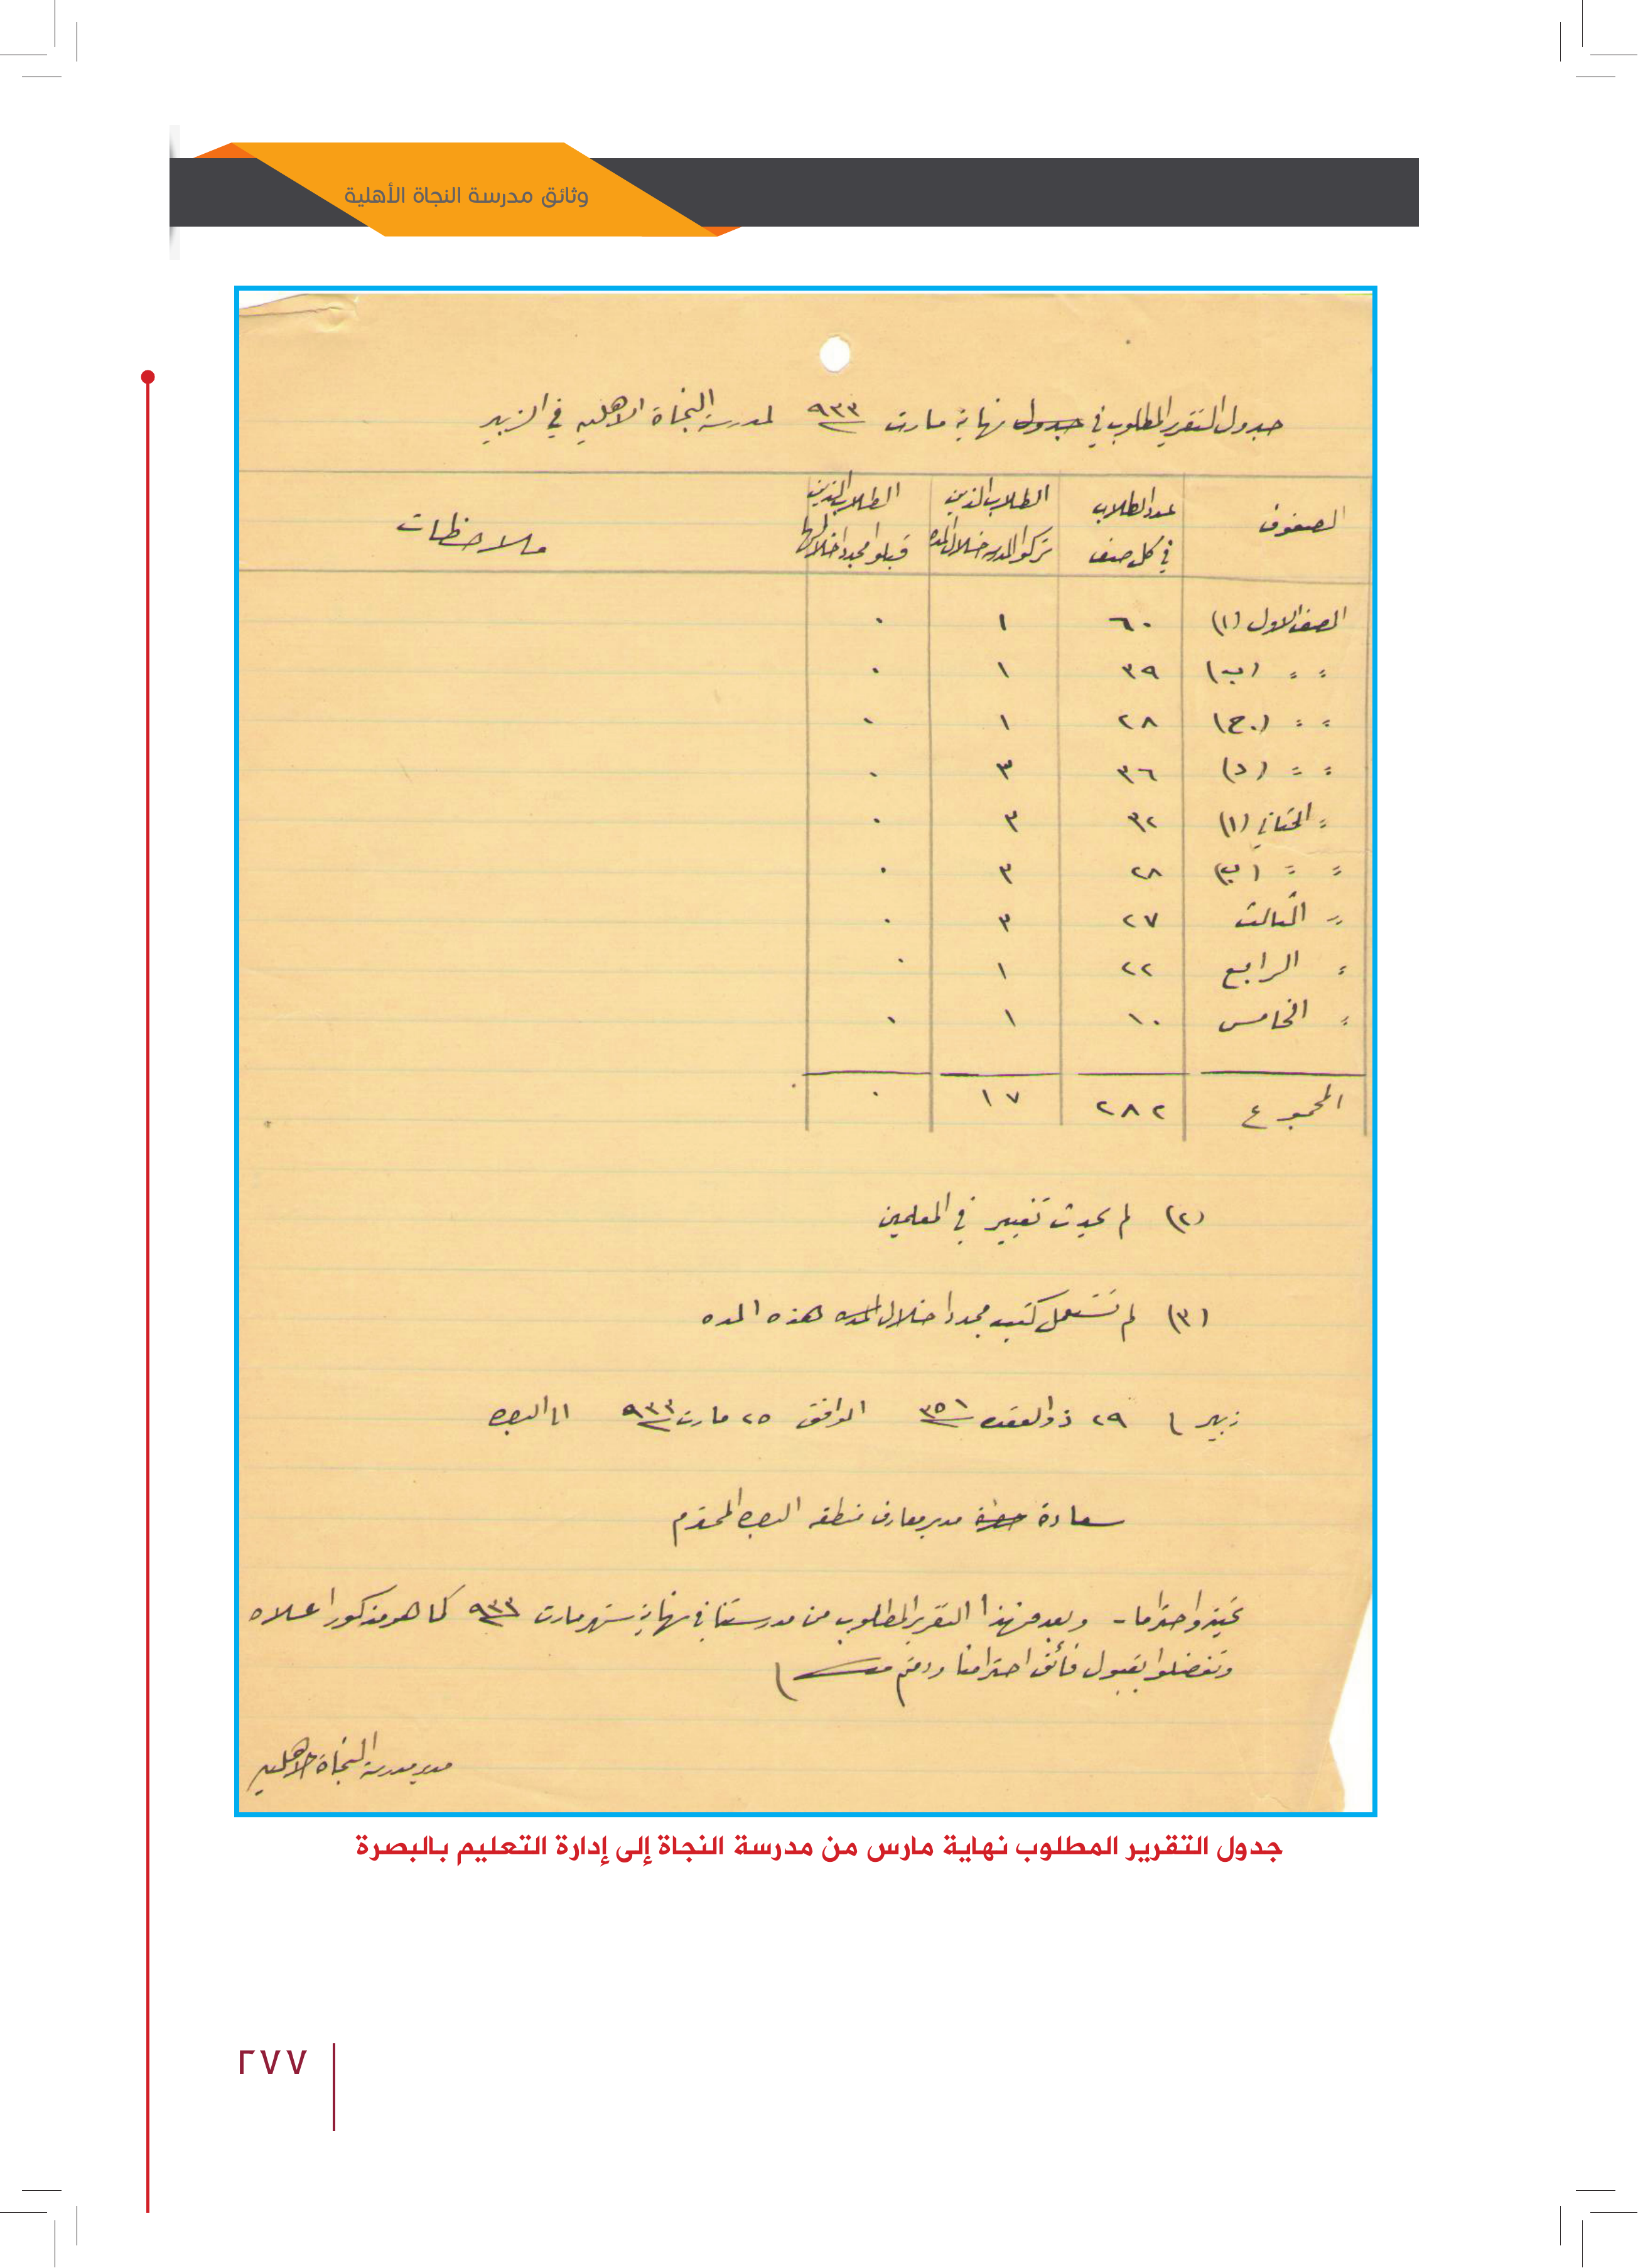 وثائق مدرسة النجاة الأهلية
جدول التقرير المطلوب في جدول نهاية مارت ٩٣٣ لمدرسة النجاة الاهليه في الزبير
الصفوف عدد الطلاب في كل صف الطلاب الذين تركوا المدرسه خلال المده الطلاب الذين قبلوا مجددا خلالها ملاحظات
الصف الاول (١) ٦٠ ١ ٠
〃 〃 (ب) ٣٩ ١ ٠
〃 〃 (ج) ٢٨ ١ ٠
〃 〃 (د) ٣٦ ٣ ٠
〃 الثاني (١) ٣٢ ٣ ٠
〃 〃 (ب) ٢٨ ٣ ٠
〃 الثالث ٢٧ ٣ ٠
〃 الرابع ٢٢ ١ ٠
〃 الخامس ١٠ ١ ٠
المجموع ٢٨٢ ١٧ ٠
(٢) لم يحدث تغيير في المعلمين
(٣) لم تستعمل كتب مجددا خلال المده هذه المده
زبير ٢٩ ذو القعده ٣٥١ الموافق ٢٥ مارت ٩٣٣ الى البصره
سعادة حضرة مدير معارف منطقه البصره المحترم
تحية واحتراما - وبعد فهذا التقرير المطلوب من مدرستنا في نهاية شهر مارت ٩٣٣ كما هو مذكور اعلاه
وتفضلوا بقبول فائق احترامنا ودمتم
مدير مدرسة النجاة الاهليه
جدول التقرير المطلوب نهاية مارس من مدرسة النجاة إلى إدارة التعليم بالبصرة
٢٧٧